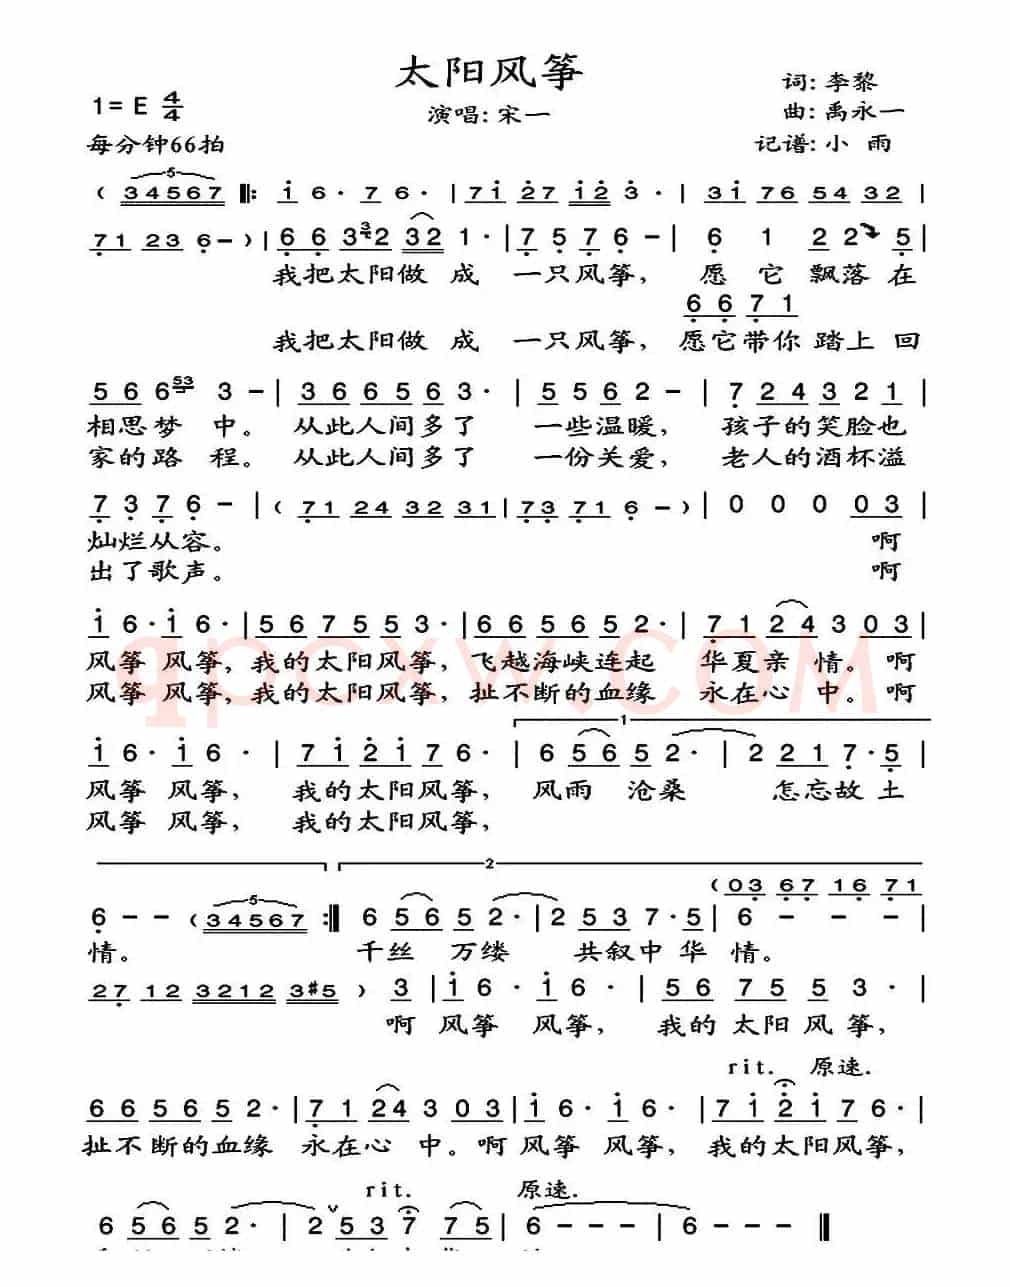 太阳风筝
1=E 4/4
演唱:宋一
词:李黎
曲:禹永一
每分钟66拍
记谱:小 雨
( 34567 ‖: i 6· 7 6· | 7i 27 i2 3· | 3i 76 54 32 |
71 23 6- ) | 6 6 332 32 1· | 7 5 7 6 - | 6 1 2 2 5 |
我把太阳做 成 一只风筝, 愿 它 飘落 在
6 6 7 1
我把太阳做 成 一只风筝, 愿它带你 踏上 回
5 6 6 53 3 - | 3 6 6 5 6 3· | 5 5 6 2 - | 7 2 4 3 2 1 |
相思梦 中。 从此人间多了 一些温暖, 孩子的笑脸也
家的路 程。 从此人间多了 一份关爱, 老人的酒杯溢
7 3 7 6 - | ( 71 24 32 31 | 73 71 6 - ) | 0 0 0 03 |
灿烂从容。 啊
出了歌声。 啊
i 6· i 6· | 5 6 7 5 5 3· | 6 6 5 6 5 2· | 7 1 2 4 3 0 3 |
风筝 风筝, 我的太阳风筝, 飞越海峡连起 华夏亲 情。 啊
风筝 风筝, 我的太阳风筝, 扯不断的血缘 永在心 中。 啊
qpcxw.com
1
i 6· i 6· | 7 i 2 i 7 6· | 6 5 6 5 2· | 2 2 1 7· 5 |
风筝 风筝, 我的太阳风筝, 风雨 沧桑 怎忘故 土
风筝 风筝, 我的太阳风筝,
2
(03 67 16 71
6 - - ( 34567 :‖ 6 5 6 5 2· | 2 5 3 7· 5 | 6 - - -
情。 千丝 万缕 共叙中 华 情。
27 12 3212 3#5 ) 3 | i 6· i 6· | 5 6 7 5 5 3· |
啊 风筝 风筝, 我的 太阳 风 筝,
rit. 原速.
6 6 5 6 5 2· | 7 1 24 3 03 | i 6· i 6· | 7 i 2 i 7 6· |
扯不断的血缘 永在心 中。 啊 风筝 风筝, 我的太阳风筝,
rit. 原速.
6 5 6 5 2· | 2 5 3 7 75 | 6 - - - | 6 - - - ‖